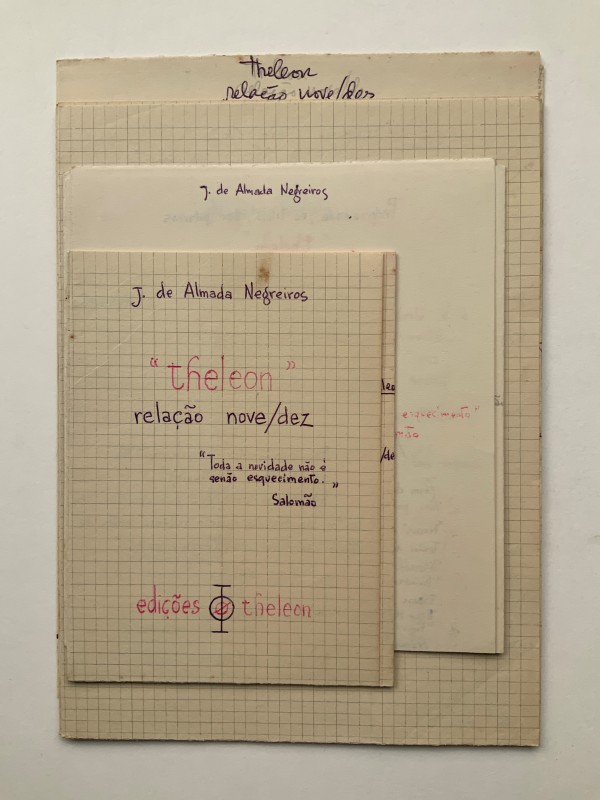 theleon
relação nove/dez
J. de Almada Negreiros
J. de Almada Negreiros
"theleon"
relação nove/dez
"Toda a novidade não é
senão esquecimento."
Salomão
edições theleon
leo
esquecimento"
mão
/de